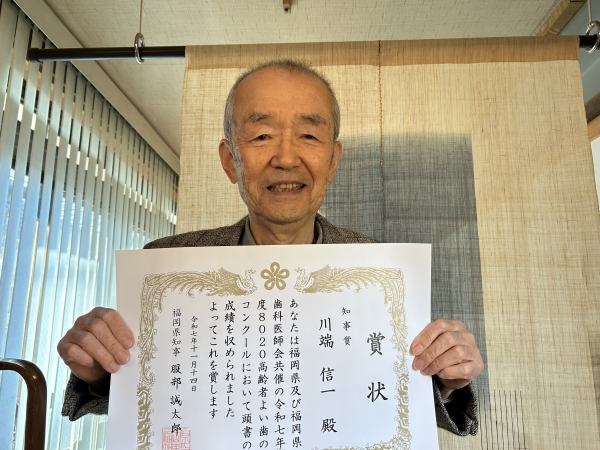 賞状
知事賞
川端 信一 殿
あなたは福岡県及び福岡県
歯科医師会共催の令和七年
度8020高齢者よい歯の
コンクールにおいて頭書の
成績を収められました
よってこれを賞します
令和七年十一月十四日
福岡県知事 服部 誠太郎